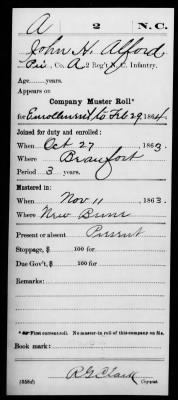 A 2 N.C.
John H. Alford
Pvt., Co. A, 2 Reg't N. C. Infantry.
Age ........ years.
Appears on
Company Muster Roll*
for Enrollment to Feb 29, 1864.
Joined for duty and enrolled:
When Oct 27, 1863.
Where Beaufort
Period 3 years.
Mustered in:
When Nov 11, 1863.
Where New Bern
Present or absent Present
Stoppage, $ 100 for
Due Gov't, $ 100 for
Remarks:
*First current roll. No muster-in roll of this company on file.
Book mark:
R G Clark
(858d) Copyist.